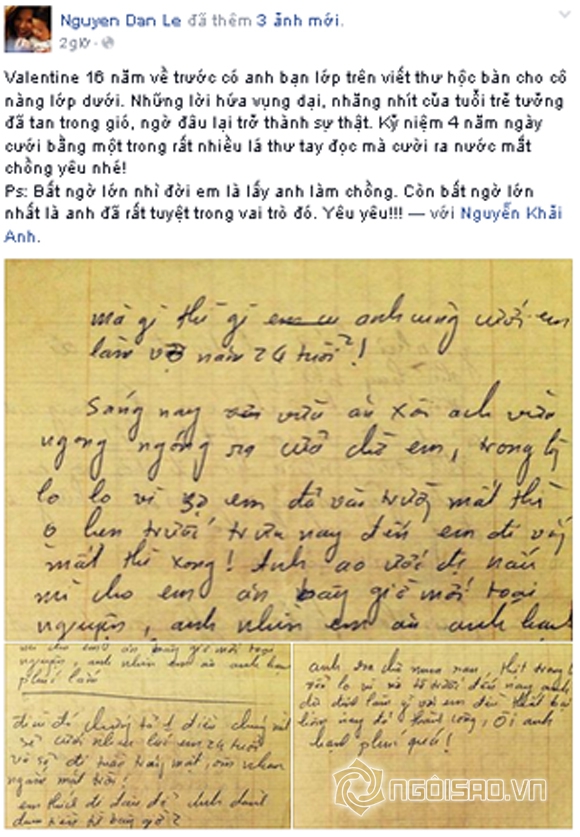 Nguyen Dan Le đã thêm 3 ảnh mới.
2 giờ ·
Valentine 16 năm về trước có anh bạn lớp trên viết thư hộc bàn cho cô
nàng lớp dưới. Những lời hứa vụng dại, nhăng nhít của tuổi trẻ tưởng
đã tan trong gió, ngờ đâu lại trở thành sự thật. Kỷ niệm 4 năm ngày
cưới bằng một trong rất nhiều lá thư tay đọc mà cười ra nước mắt
chồng yêu nhé!
Ps: Bất ngờ lớn nhì đời em là lấy anh làm chồng. Còn bất ngờ lớn
nhất là anh đã rất tuyệt trong vai trò đó. Yêu yêu!!! — với Nguyễn Khải
Anh.
mà gì thì gì anh cũng cưới em
làm vợ năm 24 tuổi!
Sáng nay vừa ăn xôi anh vừa
ngong ngóng ra cửa chờ em, trong
lo lo vì sợ em đã vào trường mất thì
hẹn trước trưa nay đến em đi với
mất thì xong! Anh ao ước đi nấu
mì cho em ăn bây giờ mới toại
nguyện, anh nhìn em ăn anh hạnh
mì cho em ăn bây giờ mới toại
nguyện, anh nhìn em ăn anh hạnh
phúc lắm
điều đó chứng tỏ 1 điều chúng mình
sẽ cưới nhau lúc em 24 tuổi
và sẽ đi tuần trăng mật, ôm nhau
ngắm mặt trời!
em thích đi đâu để anh dành
dụm tiền từ bây giờ?
anh
lo vì từ trước đến nay anh
định làm gì với em đều thất bại
hôm nay đã thành công, ôi anh
hạnh phúc quá!
NGÔISAO.VN